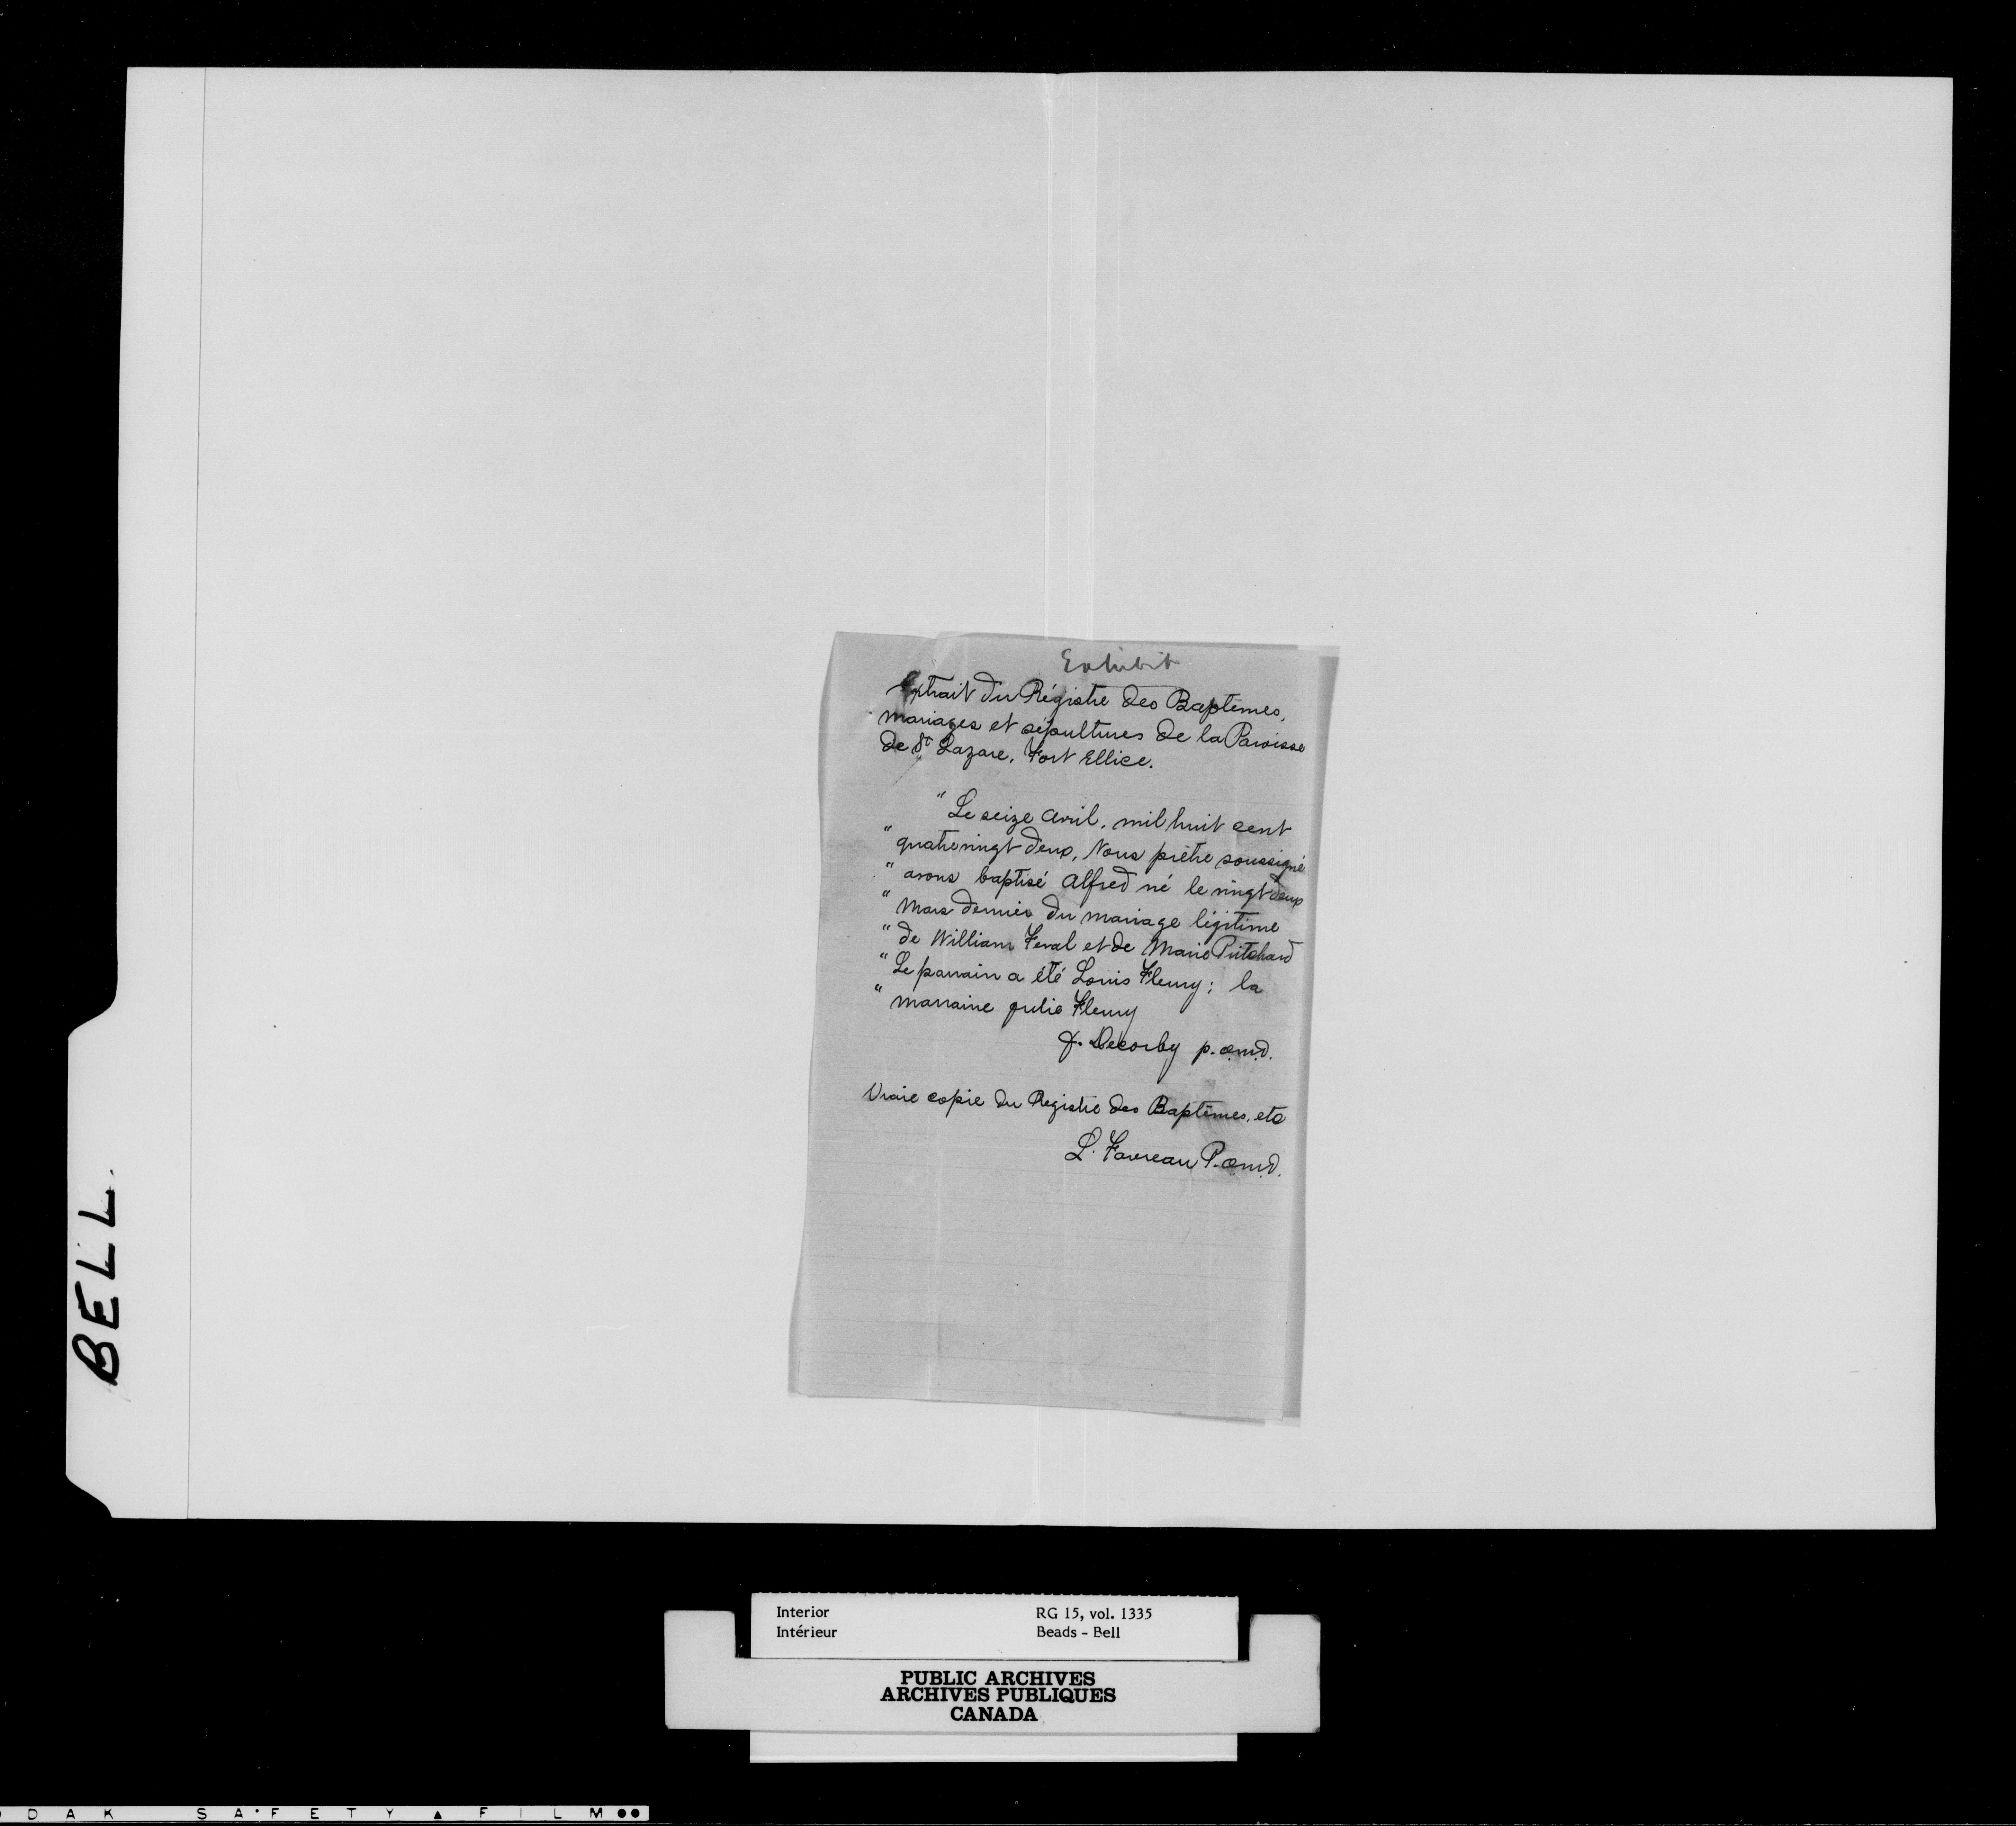 Exhibit
Extrait du Régistre des Baptêmes,
mariages et sépultures de la Paroisse
de St Lazare, Fort Ellice.
" Le seize avril, mil huit cent
" quatrevingt deux, Nous prêtre soussigné
" avons baptisé Alfred né le vingt deux
" Mars dernier du mariage légitime
" de William Feval et de Marie Pritchard
" Le parrain a été Louis Fleury ; la
" marraine Julie Fleury
J. Décorby p. o.m.d.
Vraie copie du Registre des Baptêmes, etc
L. Favreau P. o.m.d.
BELL.
Interior RG 15, vol. 1335
Intérieur Beads - Bell
PUBLIC ARCHIVES
ARCHIVES PUBLIQUES
CANADA
DAK SA•FETY ▲ FILM ●●